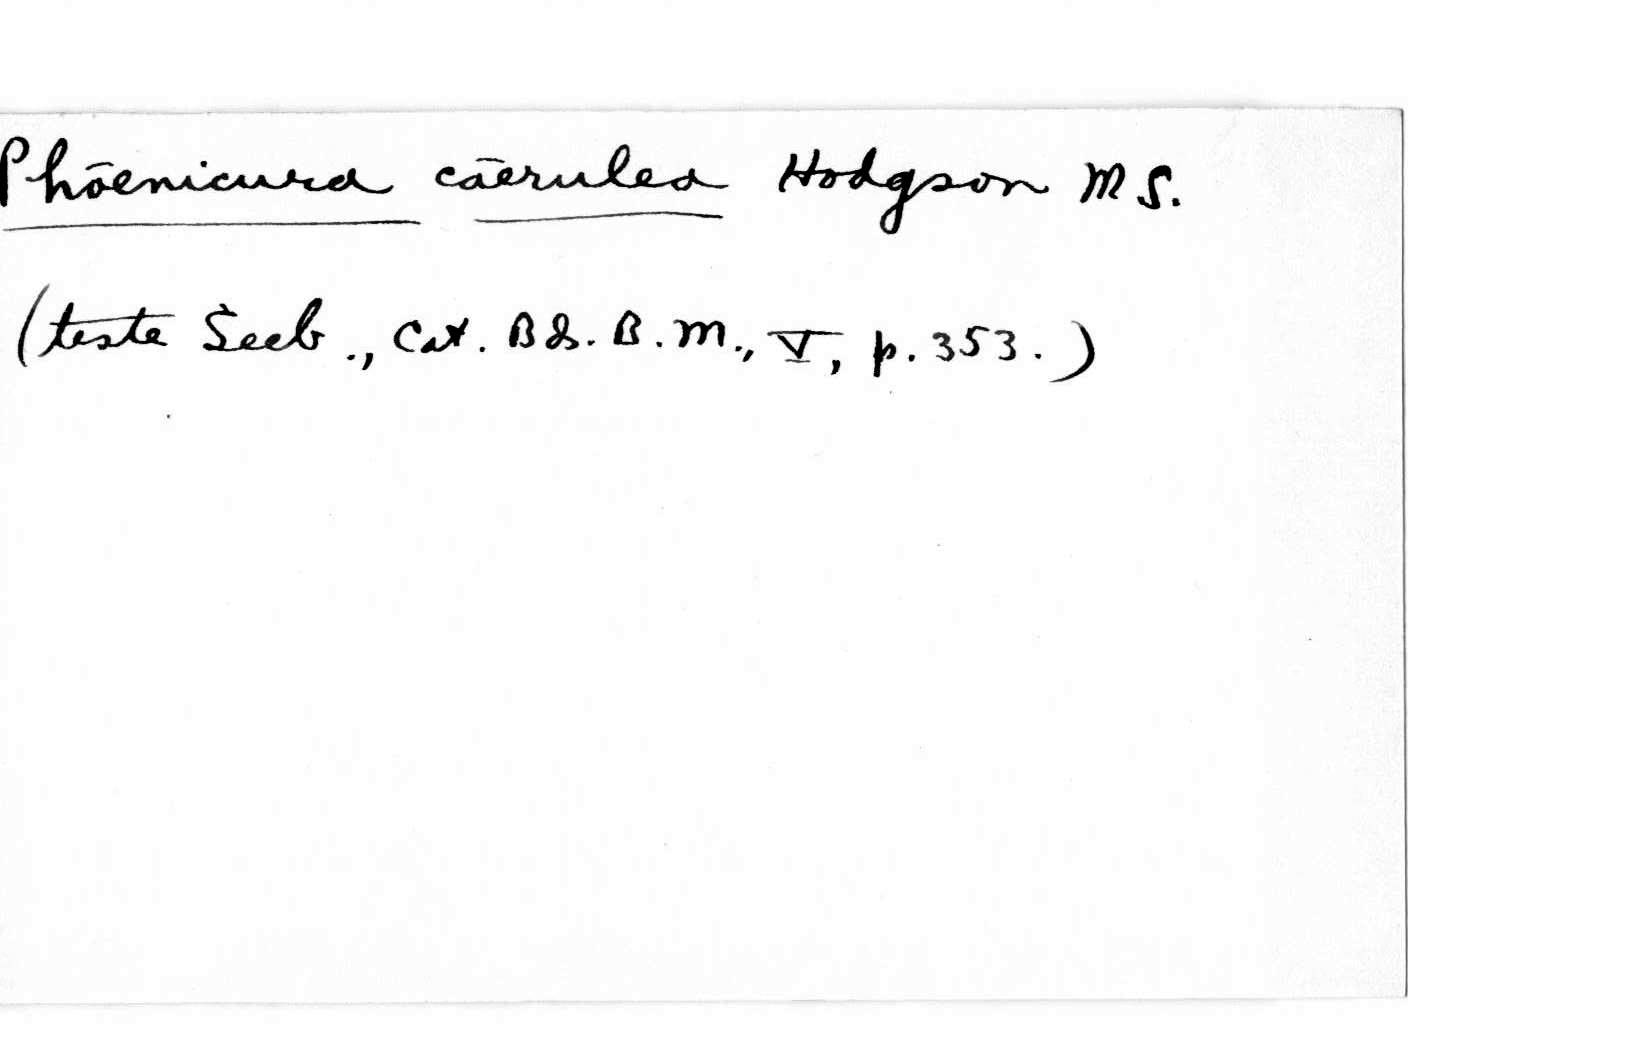 Phōenicura cāerulea Hodgson MS.
(teste Seeb., Cat. Bds. B.M., V, p. 353.)